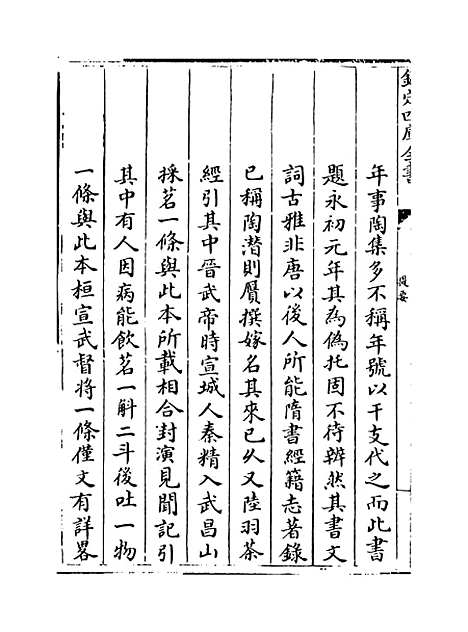 欽定四庫全書
提要
年事陶集多不稱年號以干支代之而此書
題永初元年其為偽托固不待辨然其書文
詞古雅非唐以後人所能隋書經籍志著錄
已稱陶潛則贋撰嫁名其來已乆又陸羽茶
經引其中晉武帝時宣城人秦精入武昌山
採茗一條與此本所載相合封演見聞記引
其中有人因病能飲茗一斛二斗後吐一物
一條與此本桓宣武督將一條僅文有詳畧